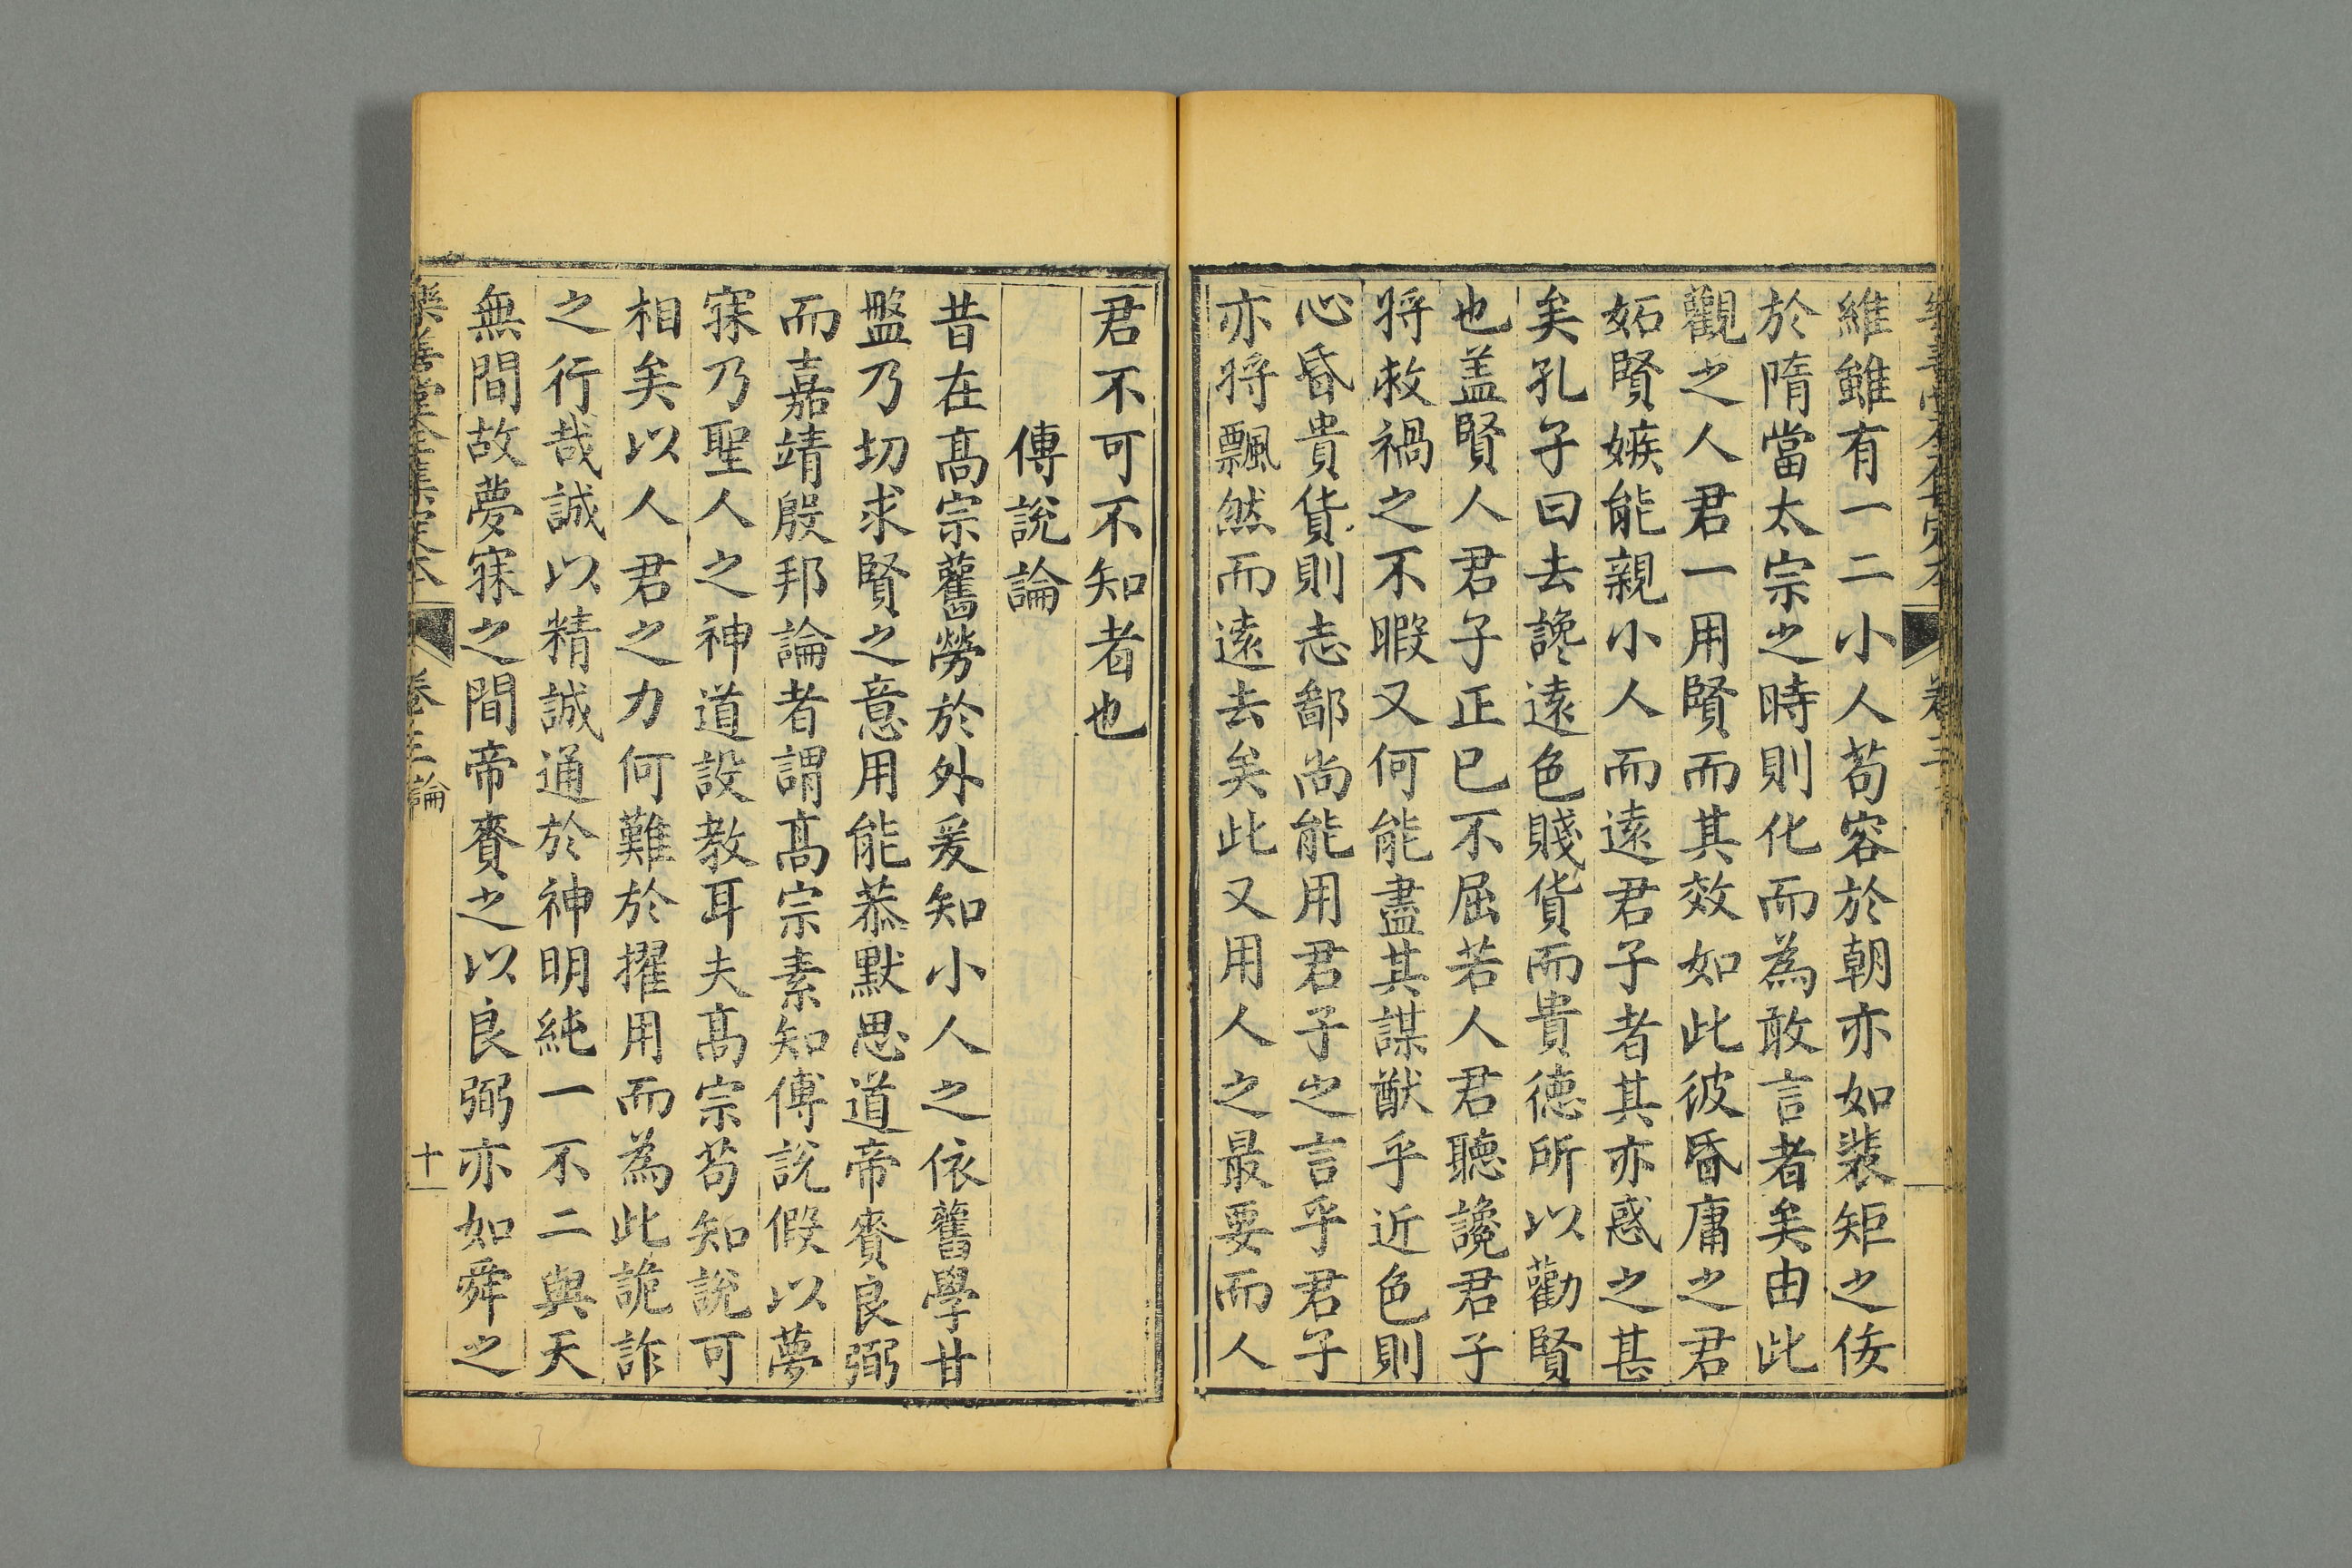 維雖有一二小人苟容於朝亦如裴矩之佞
於隋當太宗之時則化而為敢言者矣由此
觀之人君一用賢而其效如此彼昏庸之君
妬賢嫉能親小人而遠君子者其亦惑之甚
矣孔子曰去讒遠色賤貨而貴德所以勸賢
也盖賢人君子正已不屈若人君聽讒君子
将救禍之不暇又何能盡其謀猷乎近色則
心昏貴貨則志鄙尚能用君子之言乎君子
亦将飄然而遠去矣此又用人之最要而人
君不可不知者也
傳說論
昔在髙宗舊勞於外爰知小人之依舊學甘
盤乃切求賢之意用能恭默思道帝賚良弼
而嘉靖殷邦論者謂髙宗素知傅說假以夢
寐乃聖人之神道設教耳夫髙宗苟知說可
相矣以人君之力何難於擢用而為此詭詐
之行哉誠以精誠通於神明純一不二與天
無間故夢寐之間帝賚之以良弼亦如舜之
樂善堂全集定本 卷三 論 十